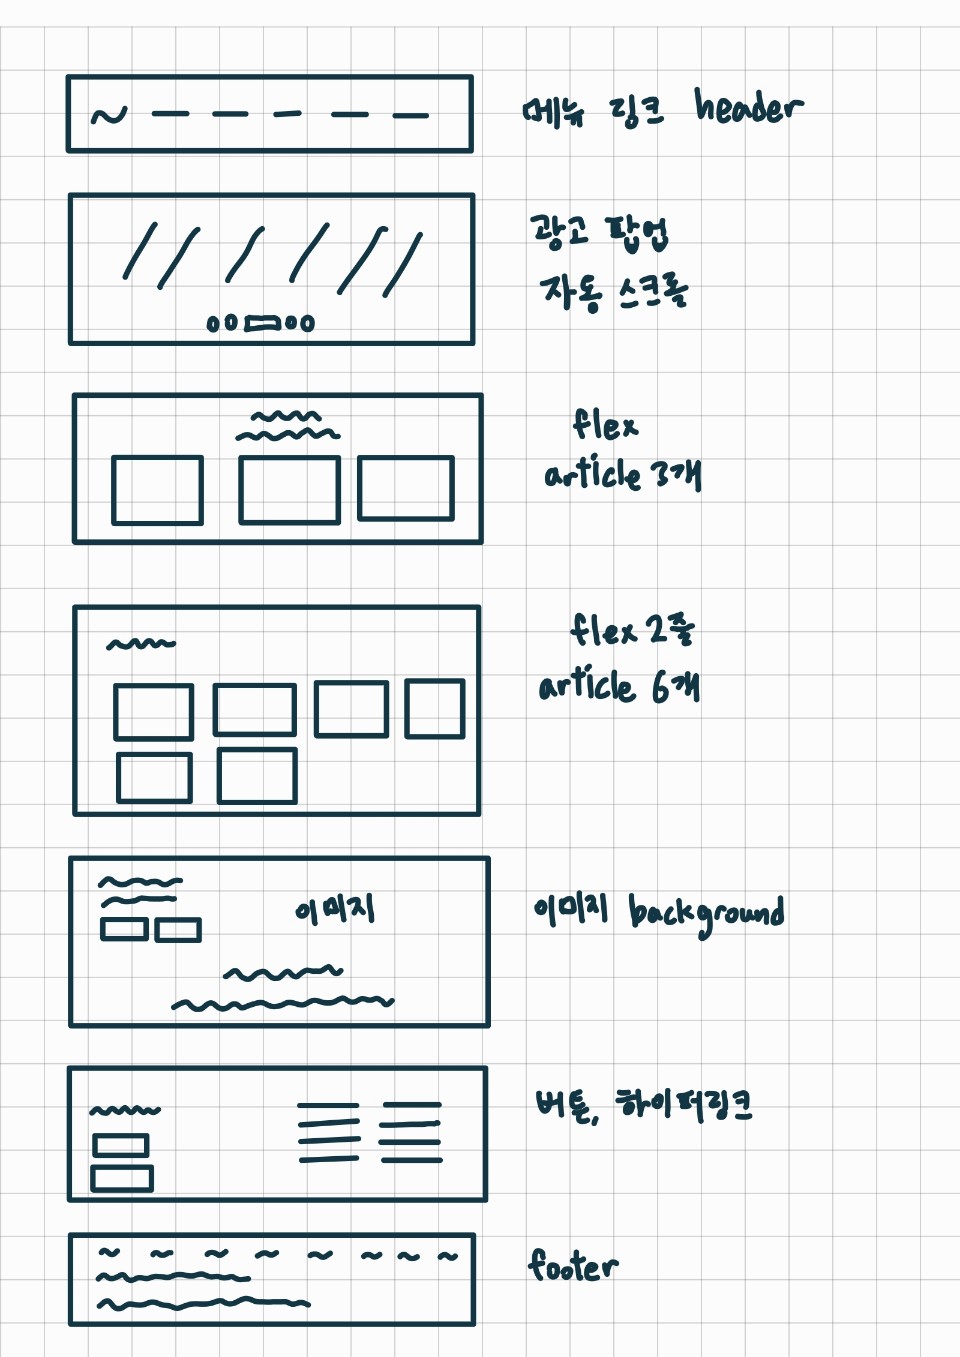 메뉴 링크 header
광고 팝업
자동 스크롤
flex
article 3개
flex 2줄
article 6개
이미지
이미지 background
버튼, 하이퍼링크
footer